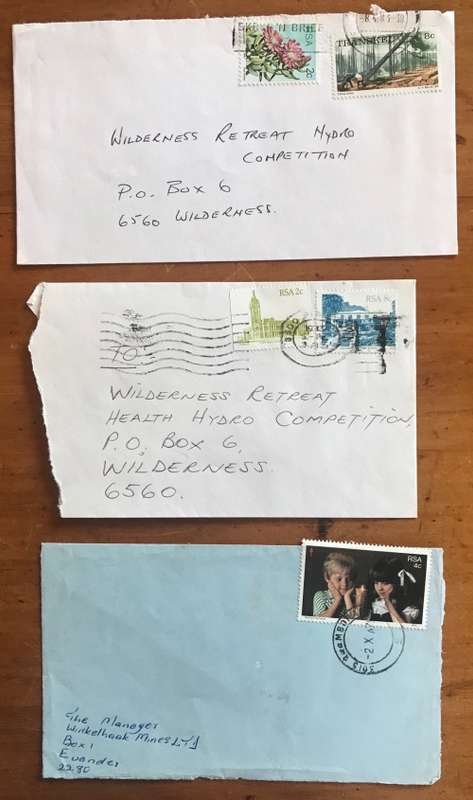 RSA
2c
TRANSKEI 8c
WILDERNESS RETREAT HYDRO
COMPETITION
P.O. BOX 6
6560 WILDERNESS.
RSA 2c
RSA 8c
WILDERNESS RETREAT
HEALTH HYDRO COMPETITION,
P.O. BOX 6,
WILDERNESS.
6560.
RSA
4c
The Manager
Winkelhaak Mines LTD
Box 1
Evander
2280